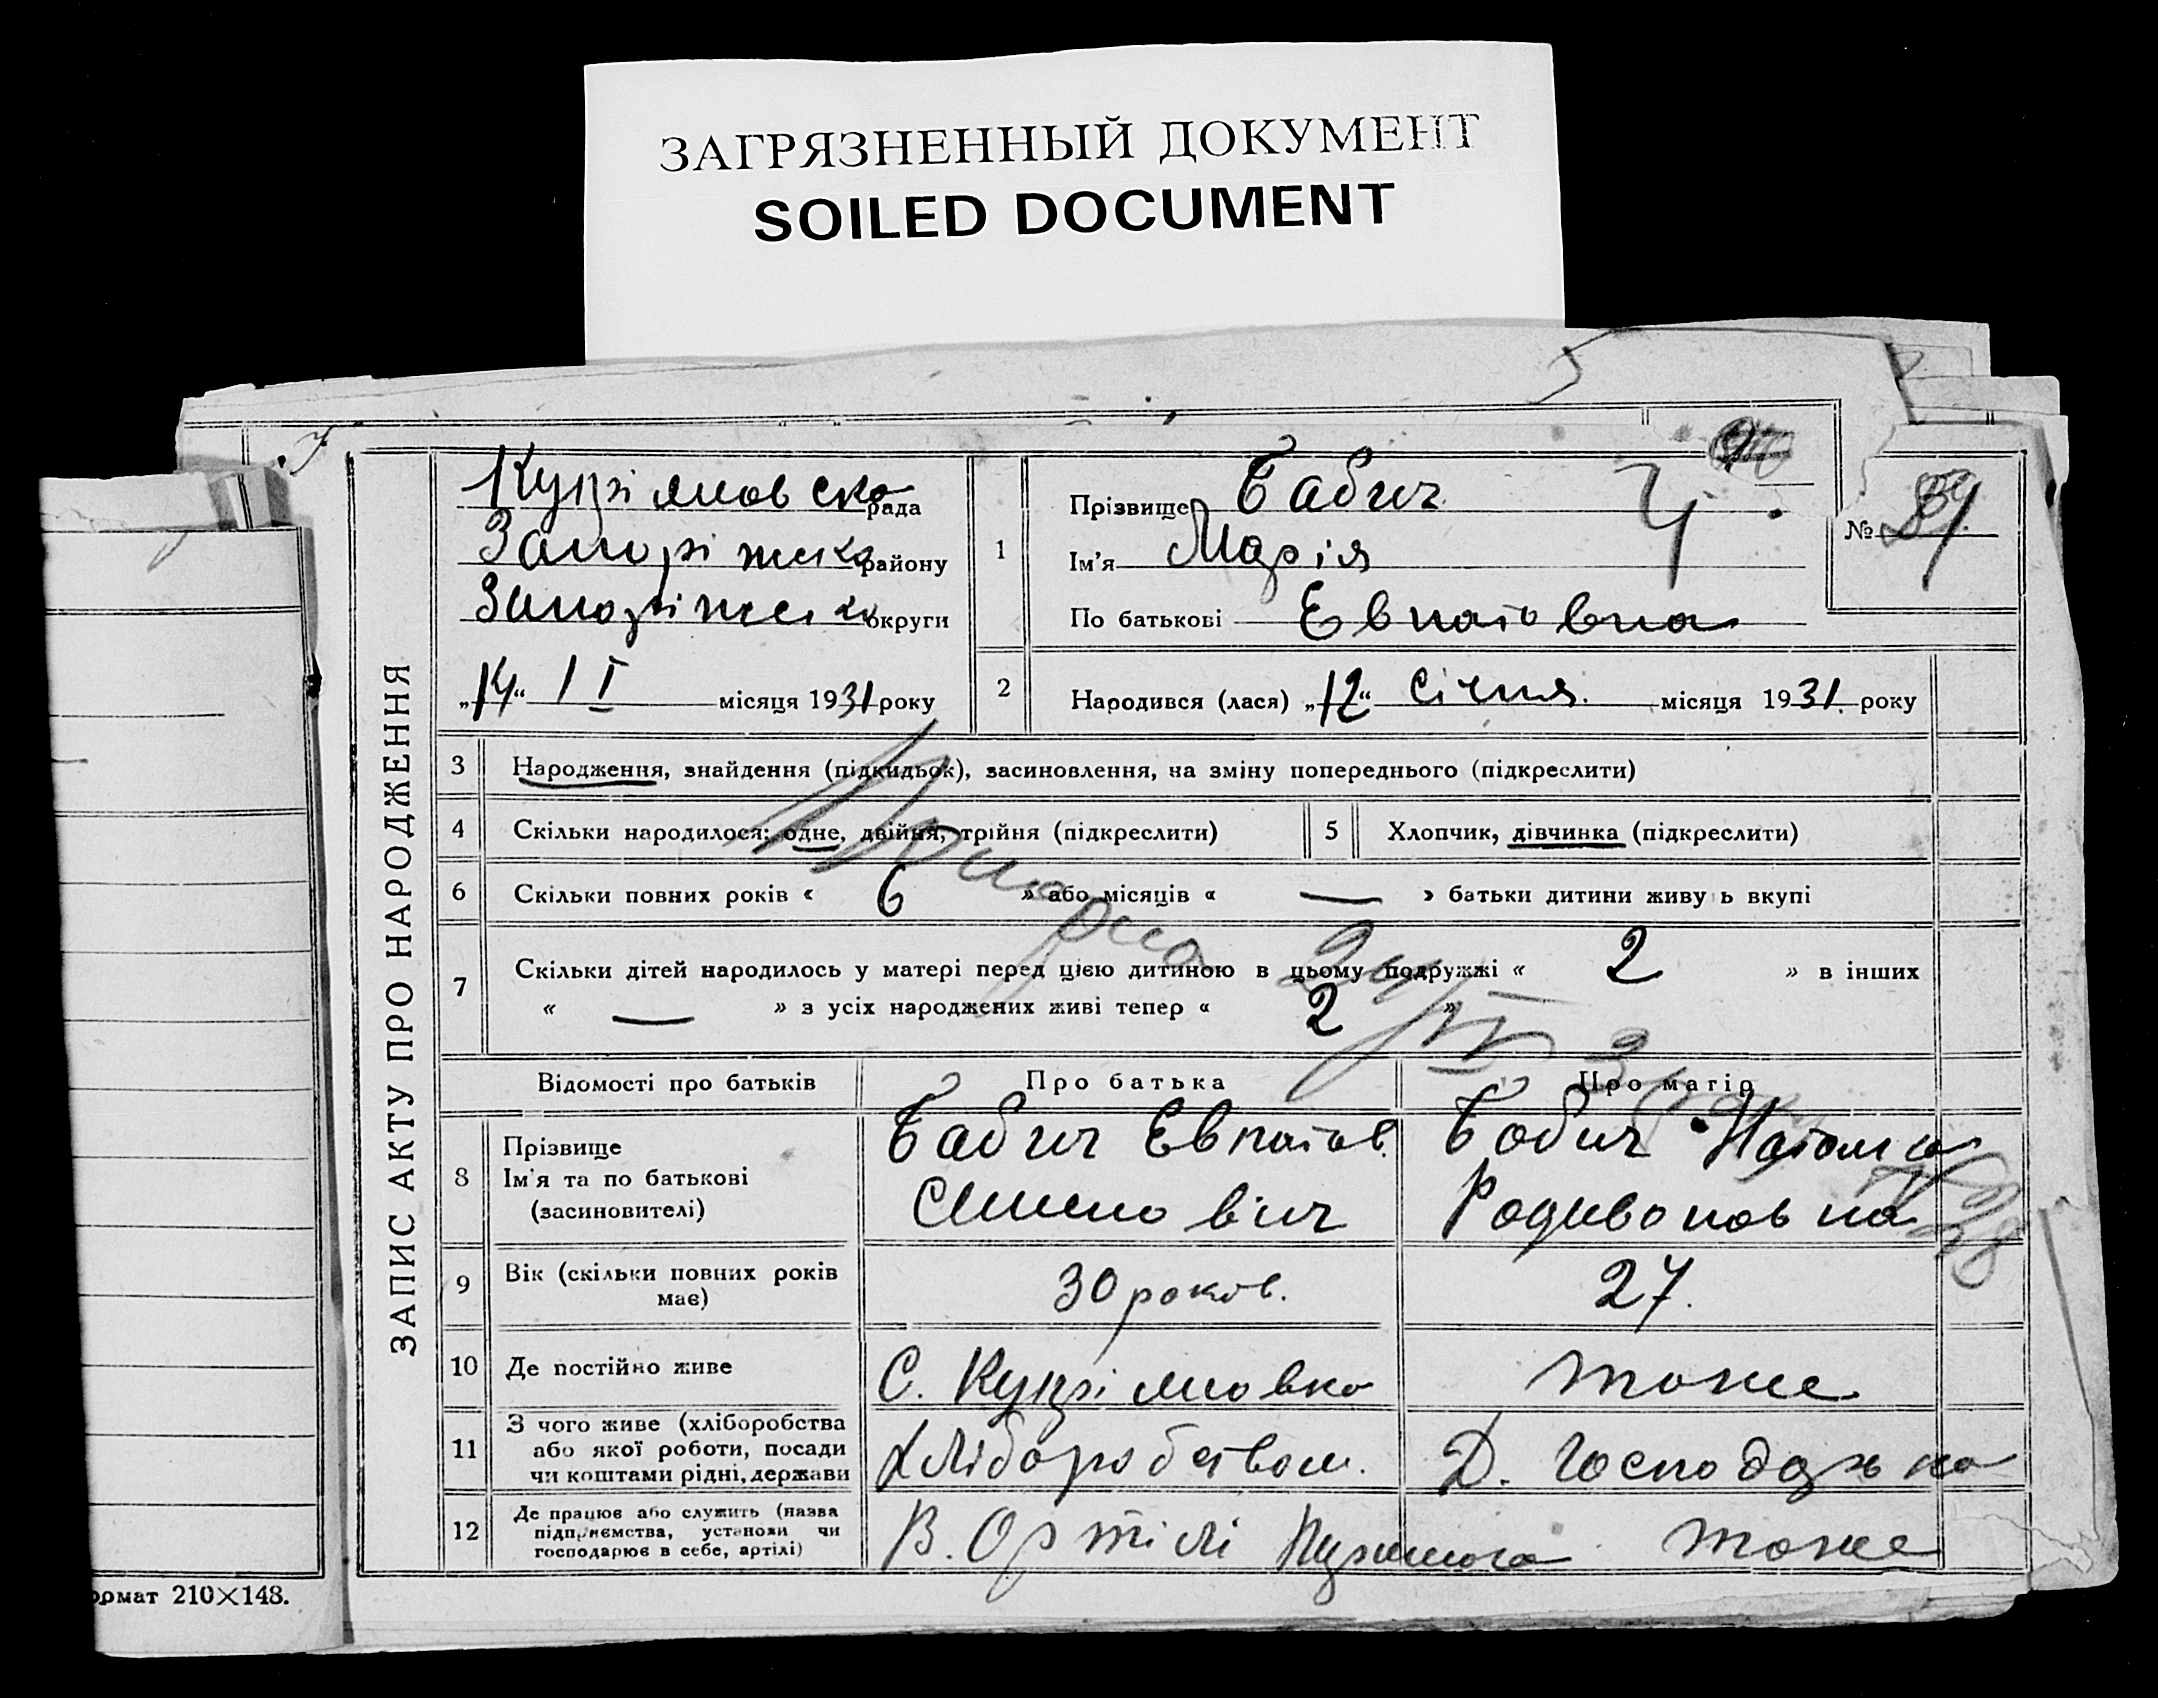 ЗАГРЯЗНЕННЫЙ ДОКУМЕНТ
SOILED DOCUMENT
ЗАПИС АКТУ ПРО НАРОДЖЕННЯ
рада
Запоріжска району
Запоріжска округи
„14“ II місяця 1931 року
1
Прізвище Бабич
Ім'я Марія
По батькові
№ 89
2 Народився (лася) „12“ Січня. місяця 1931. року
3 Народження, знайдення (підкидьок), засиновлення, на зміну попереднього (підкреслити)
4 Скільки народилося: одне, двійня, трійня (підкреслити)
5 Хлопчик, дівчинка (підкреслити)
6 Скільки повних років « 6 » або місяців « — » батьки дитини живу ь вкупі
7 Скільки дітей народилось у матері перед цією дитиною в цьому подружжі « 2 » в інших
« — » з усіх народжених живі тепер « 2 »
Відомості про батьків Про батька Про матір
8 Прізвище
Ім'я та по батькові
(засиновителі)
Бабич
Бабич Наталка
Родивоновна
9 Вік (скільки повних років
має)
30 років.
27.
10 Де постійно живе
С.
тоже
11 З чого живе (хліборобства
або якої роботи, посади
чи коштами рідні, держави
Хліборобством.
Д. Господарка
12 Де працює або служить (назва
підприємства, установи чи
господарює в себе, артілі)
В. Ортілі
тоже
ормат 210×148.